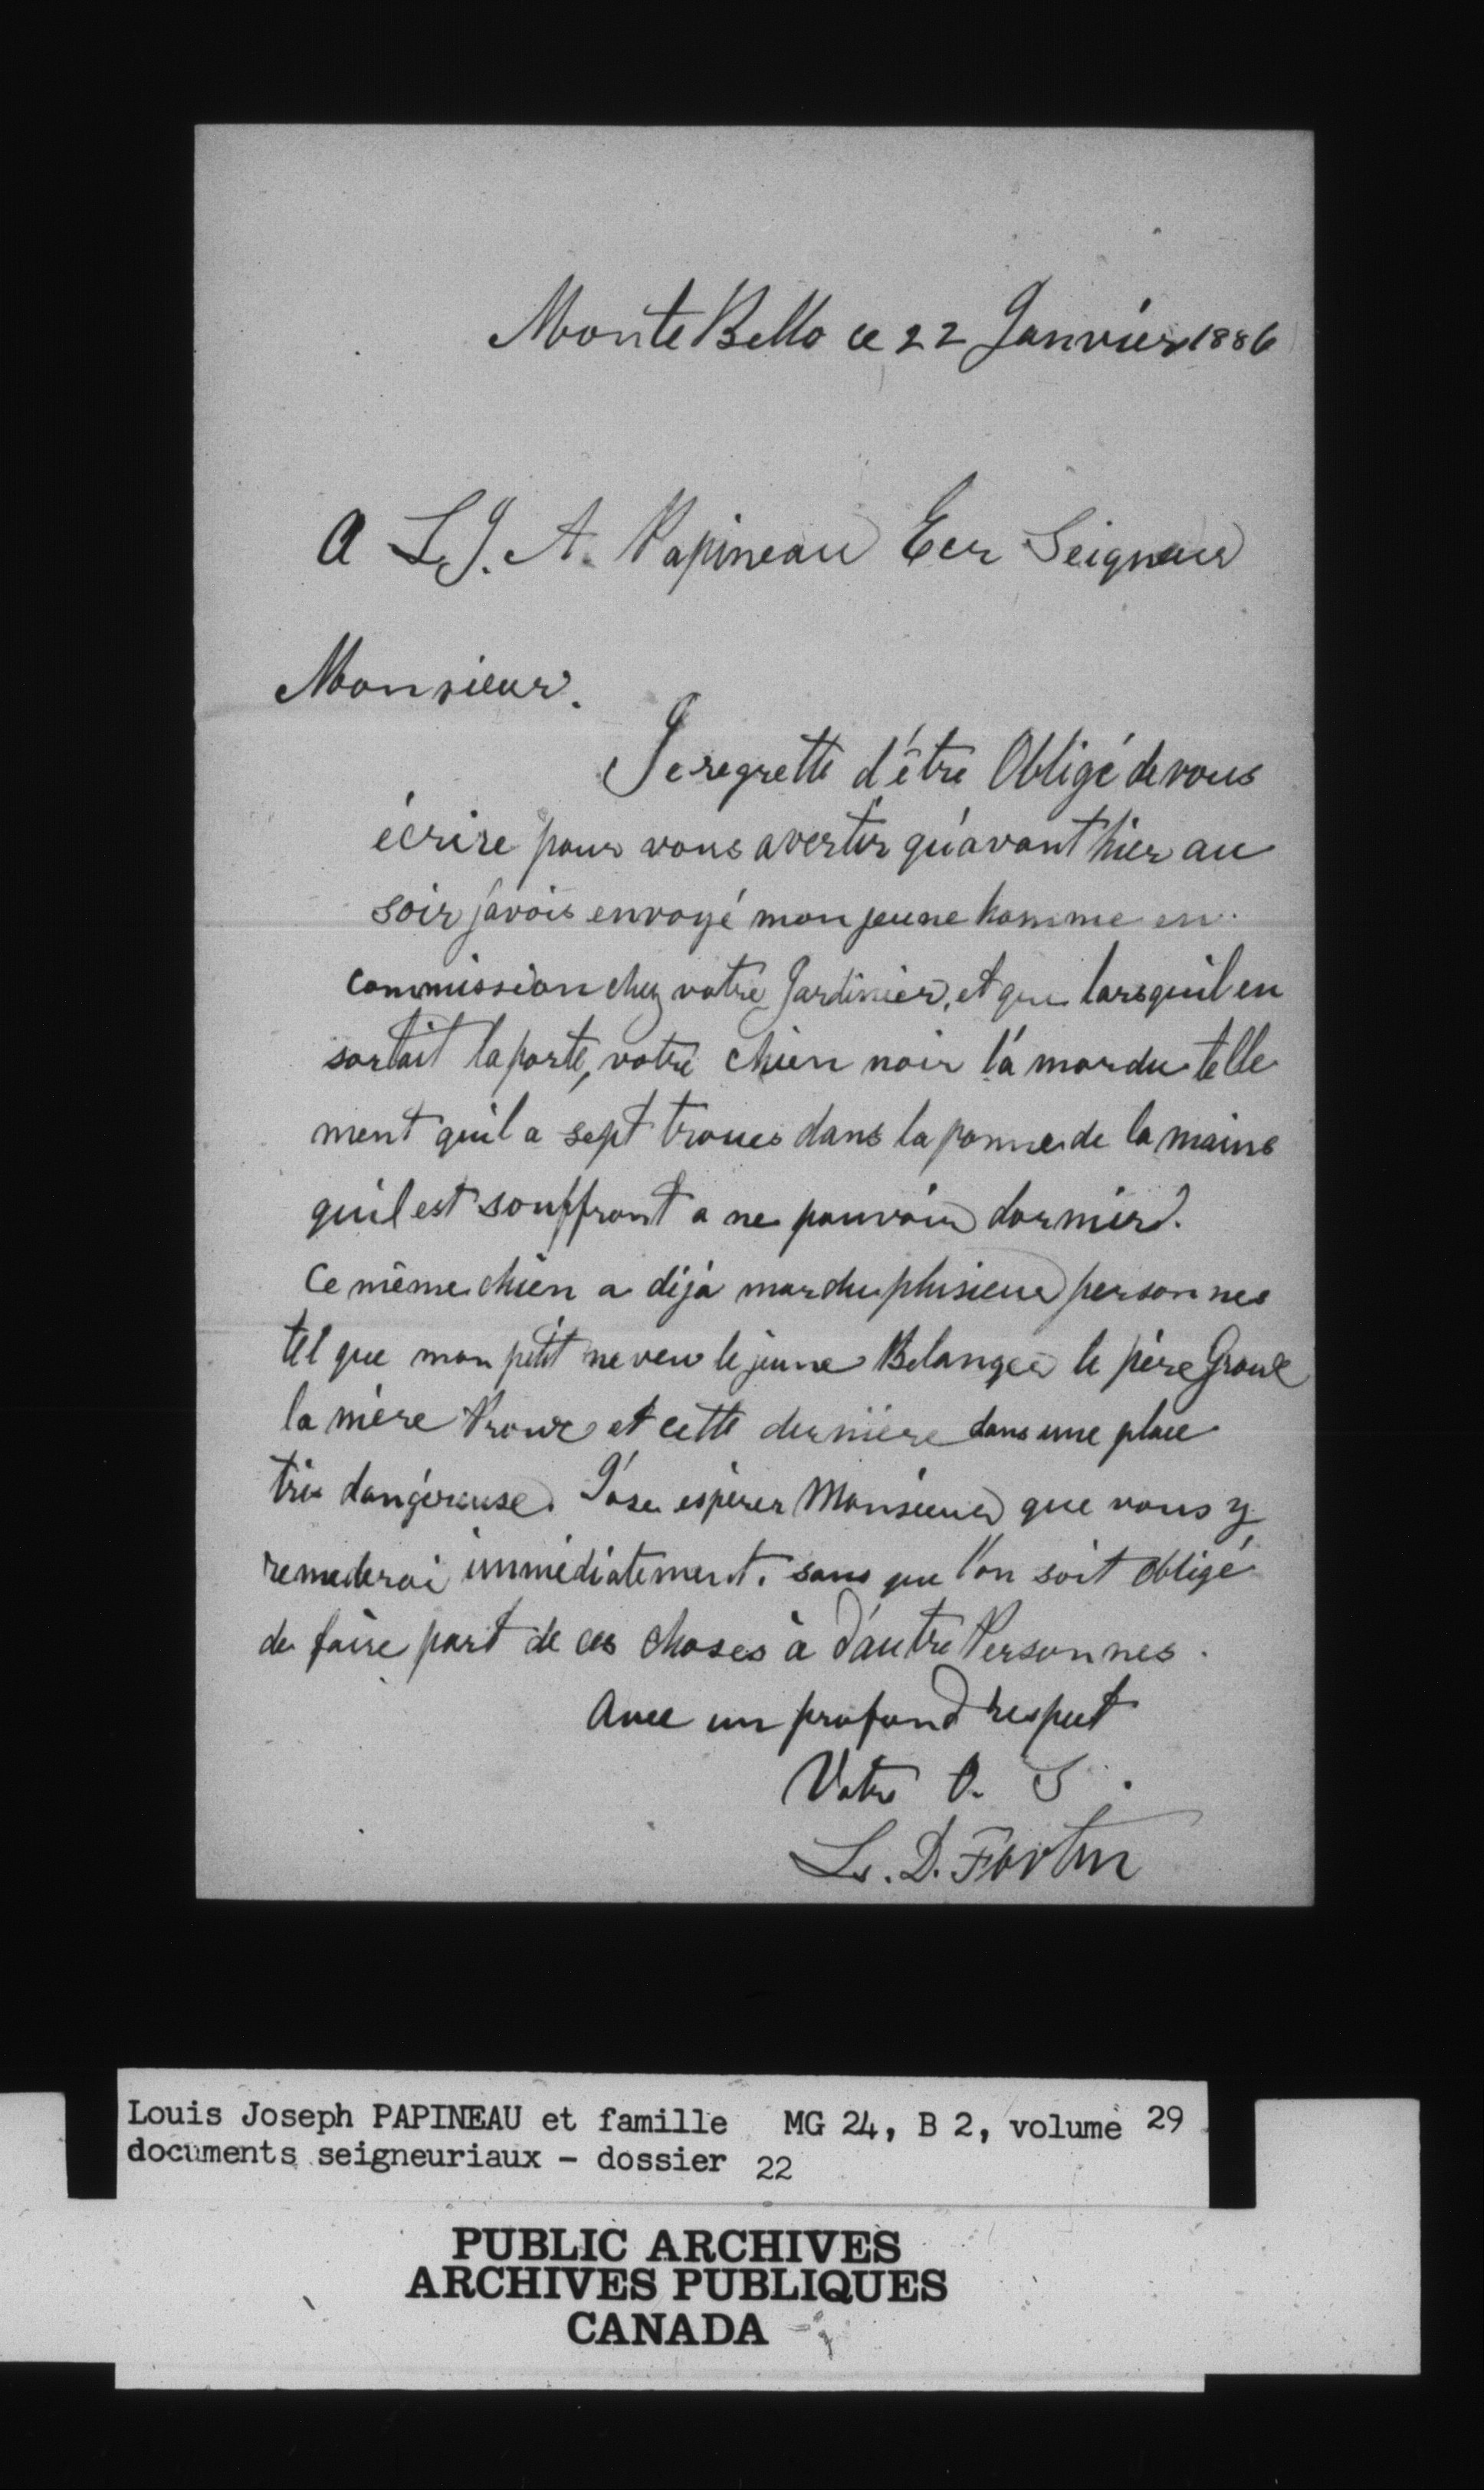 Monte Bello ce 22 Janvier 1886
A L. J. A. Papineau Ecr Seigneur
Monsieur.
Je regrette d'être Obligé de vous
écrire pour vous avertir qu'avant hier au
soir j'avais envoyé mon jeune homme en
commission chez votre Jardinier, et que lorsqu'il en
sortait la porte, votre chien noir l'a mordu telle
ment qu'il a sept troues dans la paume de la mains
qu'il est souffrant a ne pouvoir dormir.
Ce même chien a déjà mordu plusieur personnes
tel que mon petit neveu le jeune Belanger le père Groux
la mère Proux et cette dernière dans une place
très dangéreuse. J'ose espérer Monsieur que vous y
remederai immédiatement. sans que l'on soit obligé
de faire part de ces choses à d'autre Personnes.
Avec un profond respect
Votre O. S.
Ls. D. Fortin
Louis Joseph PAPINEAU et famille MG 24, B 2, volume 29
documents seigneuriaux - dossier 22
PUBLIC ARCHIVES
ARCHIVES PUBLIQUES
CANADA